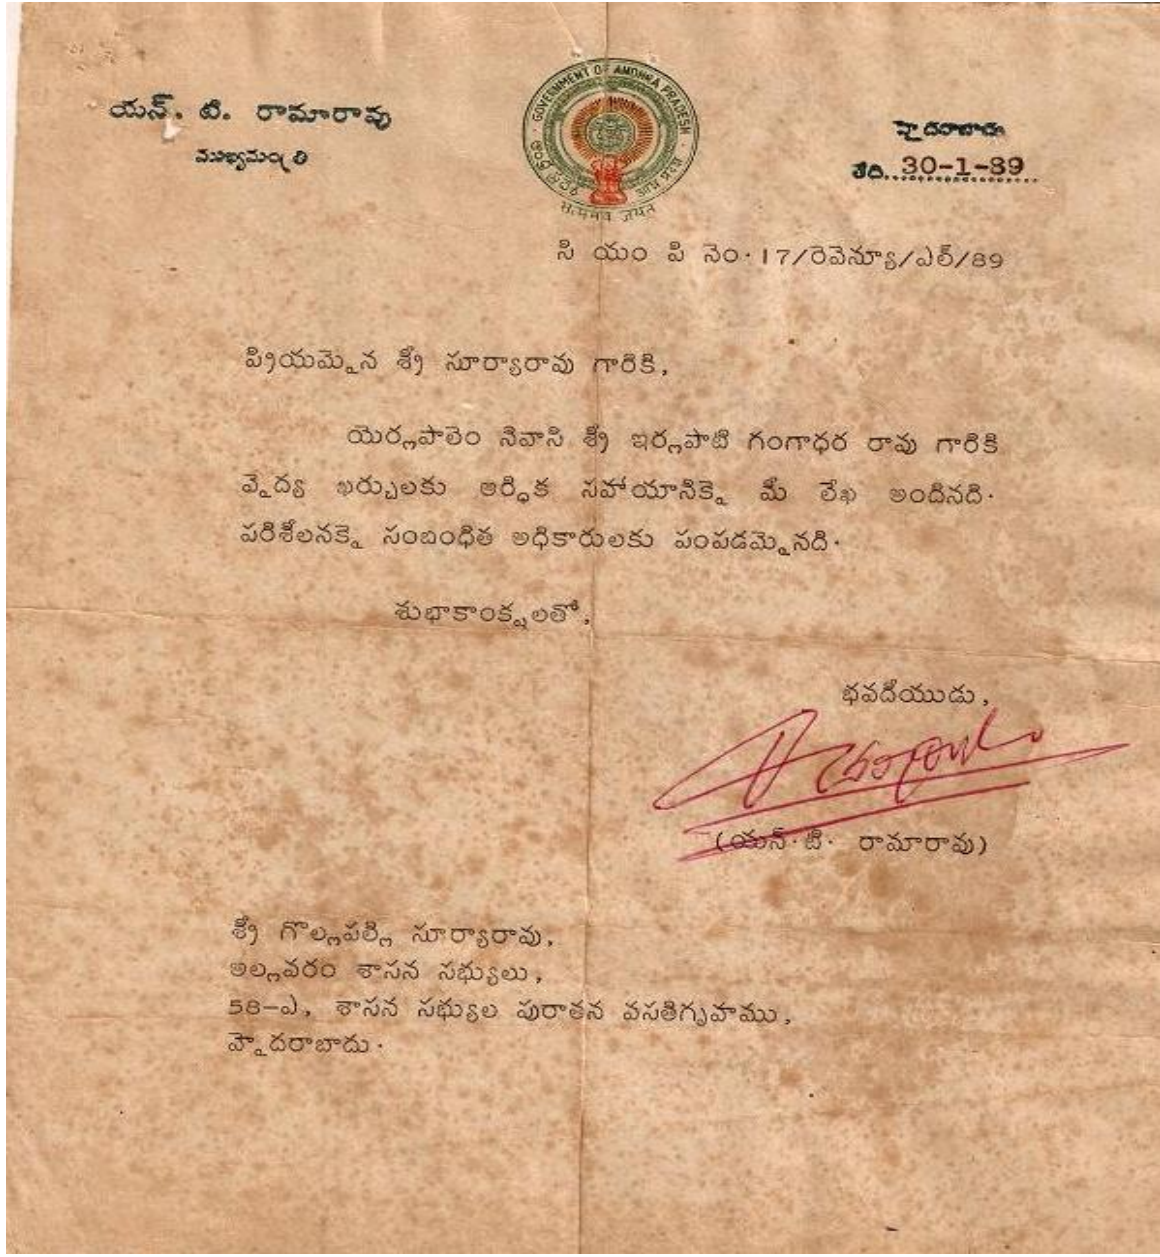 యన్. టి. రామారావు
ముఖ్యమంత్రి
GOVERNMENT OF ANDHRA PRADESH
ఆంధ్ర ప్రదేశ్
आन्ध्र प्रदेश
सत्यमेव जयते
హైదరాబాదు
తేది. 30-1-89
సి యం పి నెం. 17/రెవెన్యూ/ఎల్/89
ప్రియమైన శ్రీ సూర్యారావు గారికి,
యెర్లపాలెం నివాసి శ్రీ ఇర్లపాటి గంగాధర రావు గారికి
వైద్య ఖర్చులకు ఆర్ధిక సహాయానికై మీ లేఖ అందినది.
పరిశీలనకై సంబంధిత అధికారులకు పంపడమైనది.
శుభాకాంక్షలతో,
భవదీయుడు,
(యన్.టి. రామారావు)
శ్రీ గొల్లపల్లి సూర్యారావు,
అల్లవరం శాసన సభ్యులు,
58-ఎ, శాసన సభ్యుల పురాతన వసతిగృహము,
హైదరాబాదు.